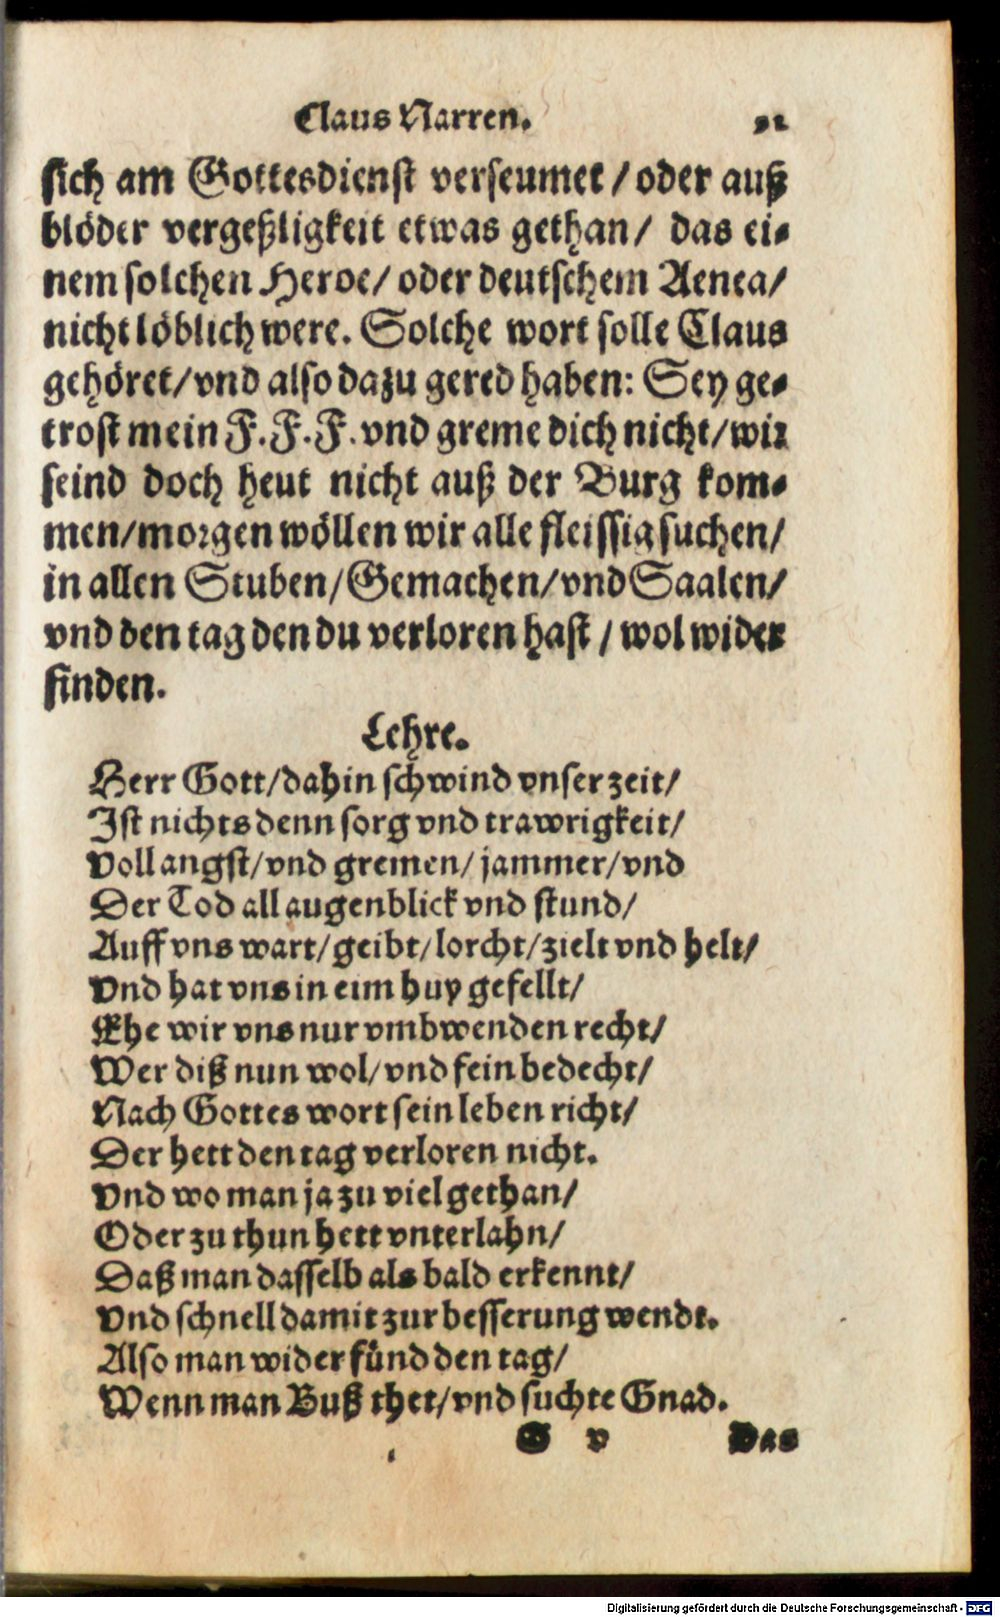 Claus Narren.
sich am Gottesdienst verseumet / oder auß
blöder vergeßligkeit etwas gethan / das ei-
nem solchen Heroe / oder deutschem Aenea /
nicht löblich were. Solche wort solle Claus
gehöret / vnd also dazu gered haben: Sey ge-
trost mein F. F. F. vnd greme dich nicht / wir
seind doch heut nicht auß der Burg kom-
men / morgen wöllen wir alle fleissig suchen /
in allen Stuben / Gemachen / vnd Saalen /
vnd den tag den du verloren hast / wol wider
finden.
Lehre.
Herr Gott / dahin schwind vnser zeit /
Ist nichts denn sorg vnd trawrigkeit /
Voll angst / vnd gremen / jammer / vnd
Der Tod all augenblick vnd stund /
Auff vns wart / geibt / lorcht / zielt vnd helt /
Vnd hat vns in eim huy gefellt /
Ehe wir vns nur vmbwenden recht /
Wer diß nun wol / vnd fein bedecht /
Nach Gottes wort sein leben richt /
Der hett den tag verloren nicht.
Vnd wo man ja zu viel gethan /
Oder zu thun hett vnterlahn /
Daß man dasselb als bald erkennt /
Vnd schnell damit zur besserung wendt.
Also man wider fünd den tag /
Wenn man Buß thet / vnd suchte Gnad.
v Das
Digitalisierung gefördert durch die Deutsche Forschungsgemeinschaft - DFG